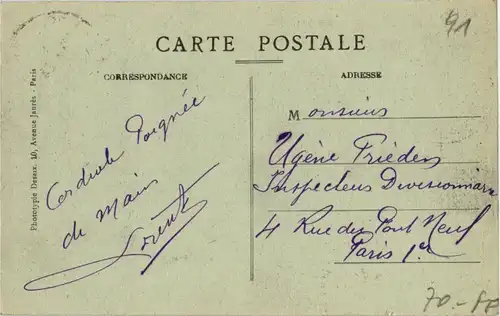 91
CARTE POSTALE
CORRESPONDANCE
ADRESSE
Phototypie Desaix, 40, Avenue Jaurès - Paris
Cordiale Poignée
de Main
Monsieur
Ugène Frieden
Inspecteur Divisionnaire
4 Rue du Pont Neuf
Paris 1er
70-